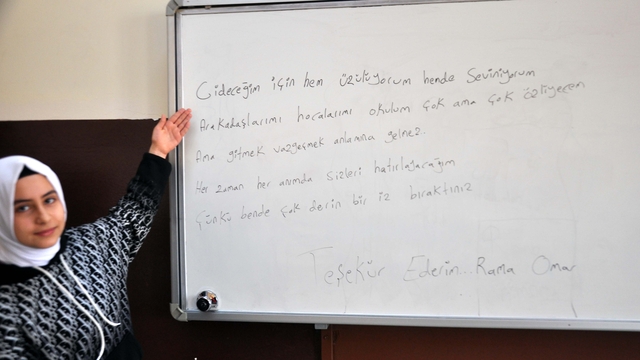 Gideceğim için hem üzülüyorum hende Seviniyorum
Arakadaşlarımı hocalarımı okulum çok ama çok özliyecen
Ama gitmek vazgeçmek anlamına gelmez..
Her zaman her anımda sizleri hatırlayacağım
Çünkü bende çok derin bir iz bıraktınız
Teşekür Ederim.. Rama Omar